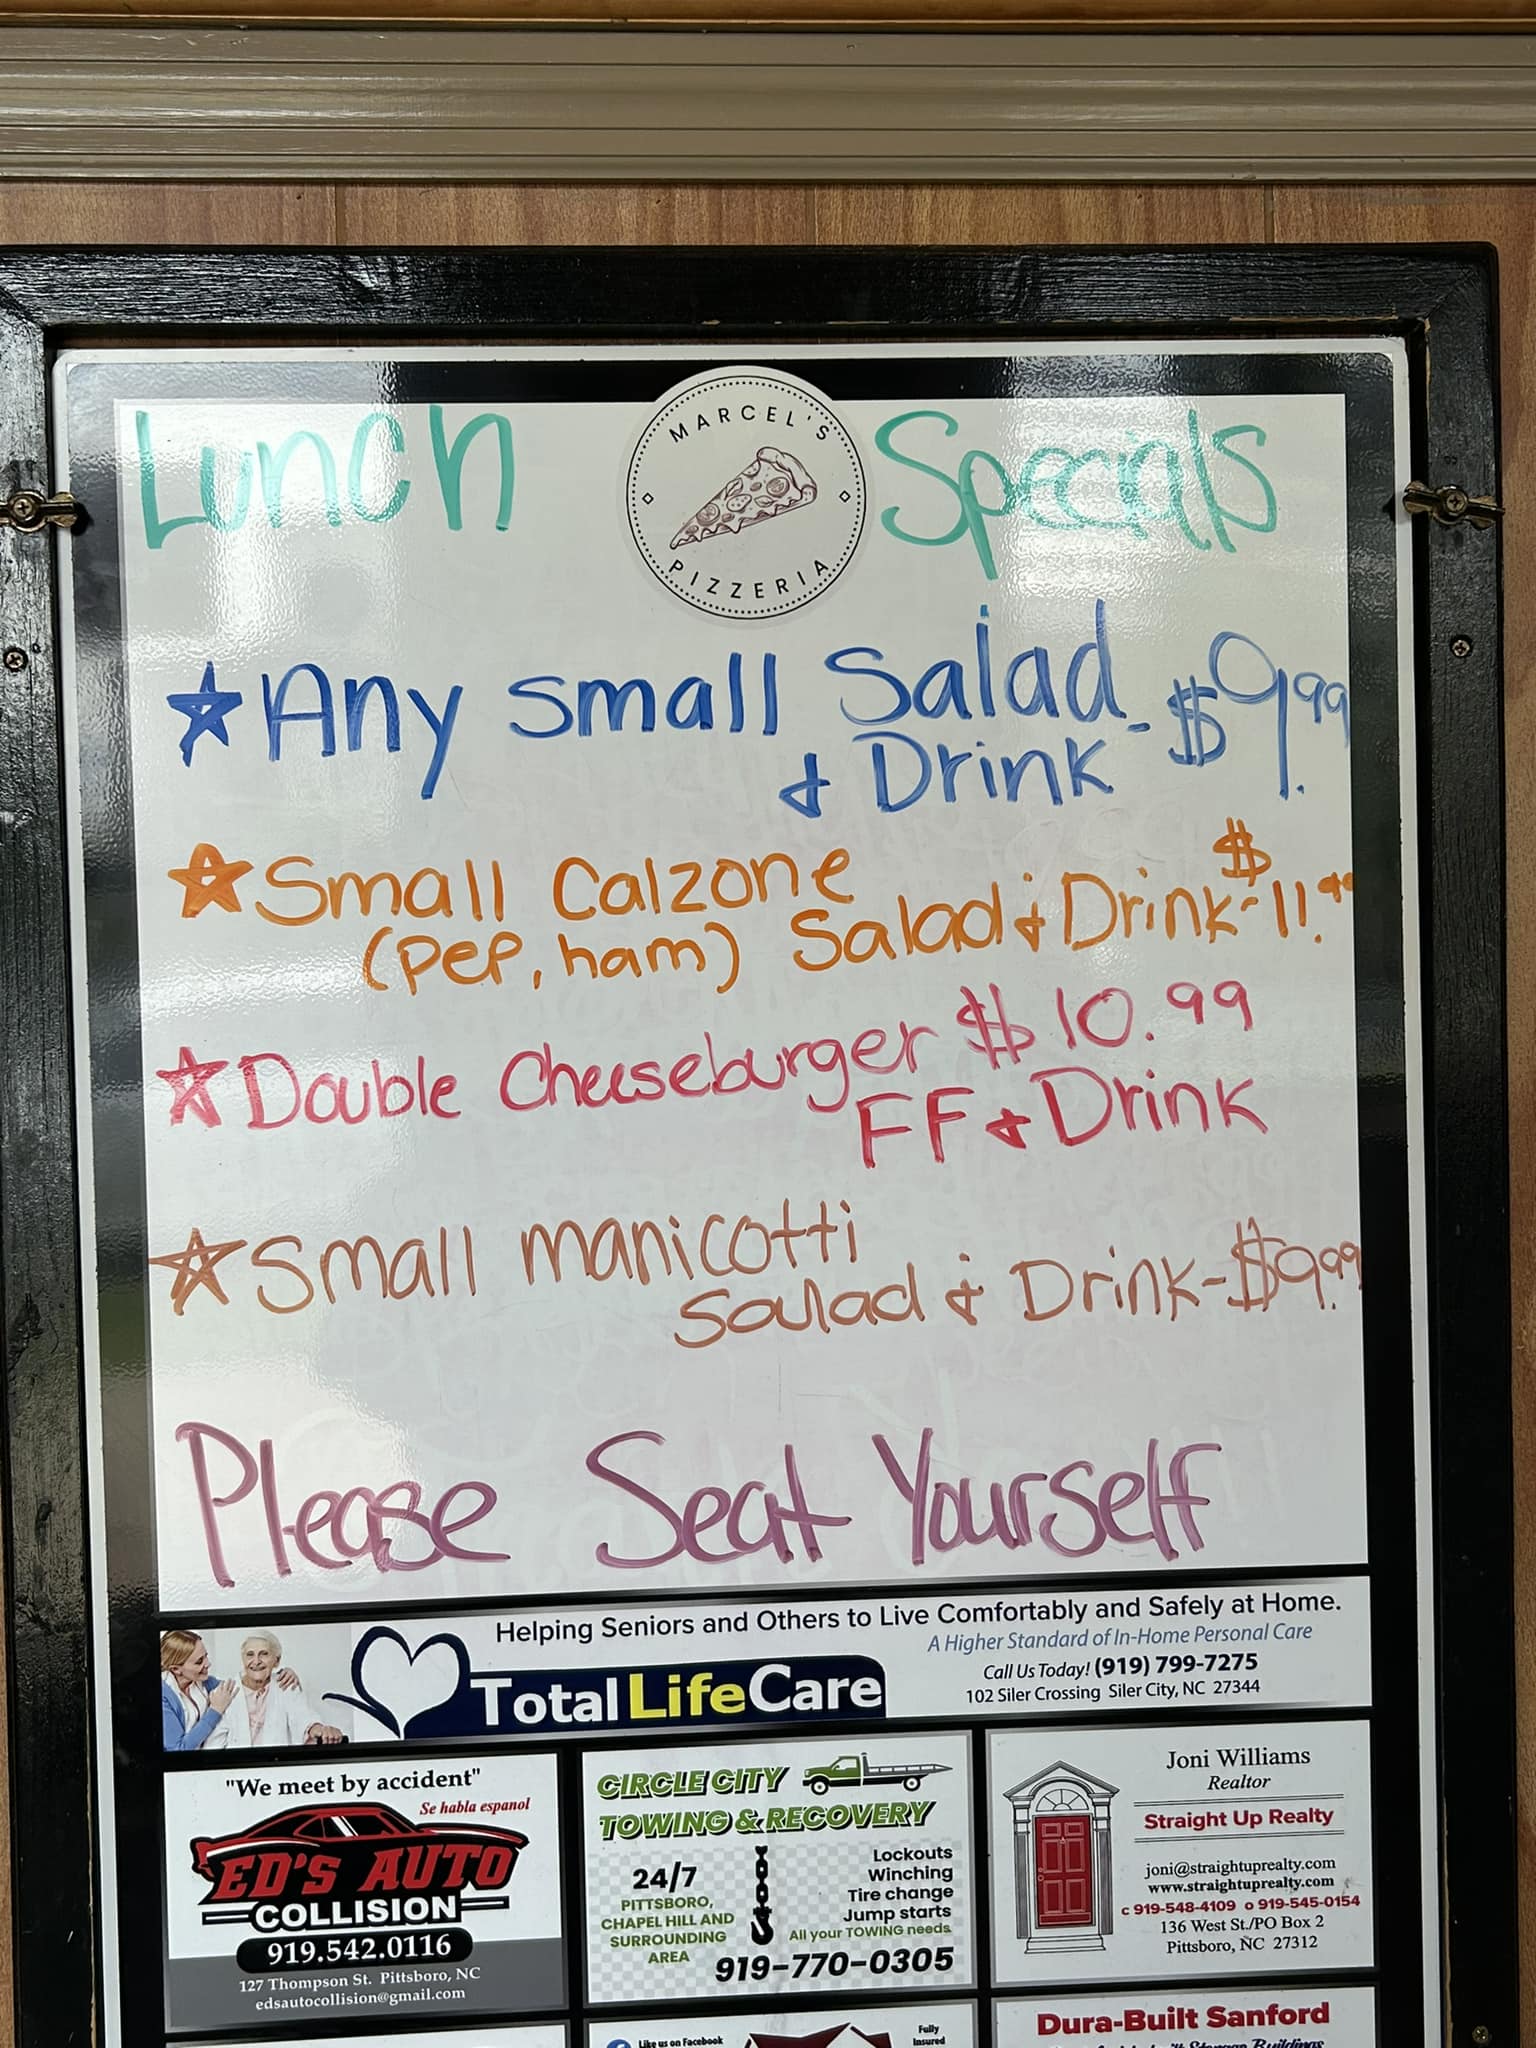 Lunch Specials
MARCEL'S
PIZZERIA
Any Small Salad
& Drink - $9.99
Small Calzone
(pep, ham) Salad & Drink - $11.99
Double Cheeseburger $10.99
FF & Drink
Small manicotti
Salad & Drink - $9.99
Please Seat Yourself
Helping Seniors and Others to Live Comfortably and Safely at Home.
A Higher Standard of In-Home Personal Care
Total LifeCare
Call Us Today! (919) 799-7275
102 Siler Crossing Siler City, NC 27344
"We meet by accident"
Se habla espanol
ED'S AUTO
COLLISION
919.542.0116
127 Thompson St. Pittsboro, NC
edsautocollision@gmail.com
CIRCLE CITY
TOWING & RECOVERY
24/7
PITTSBORO,
CHAPEL HILL AND
SURROUNDING
AREA
Lockouts
Winching
Tire change
Jump starts
All your TOWING needs
919-770-0305
Joni Williams
Realtor
Straight Up Realty
joni@straightuprealty.com
www.straightuprealty.com
c 919-548-4109 o 919-545-0154
136 West St./PO Box 2
Pittsboro, NC 27312
Like us on Facebook
Fully
Insured
Dura-Built Sanford